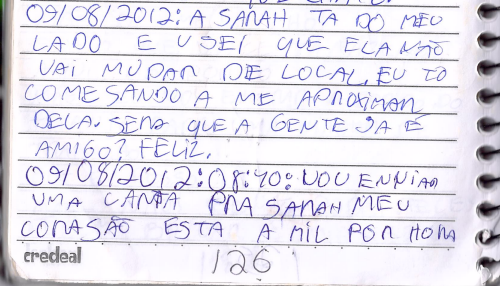 09/08/2012: A SARAH TA DO MEU
LADO E USEI QUE ELA NÃO
VAI MUDAR DE LOCAL, EU TO
COMESANDO A ME APROXIMAR
DELA. SERA QUE A GENTE JA É
AMIGO? FELIZ.
09/08/2012:08:40: VOU ENVIAR
UMA CARTA PRA SARAH MEU
CORASÃO ESTA A MIL POR HORA
credeal
126